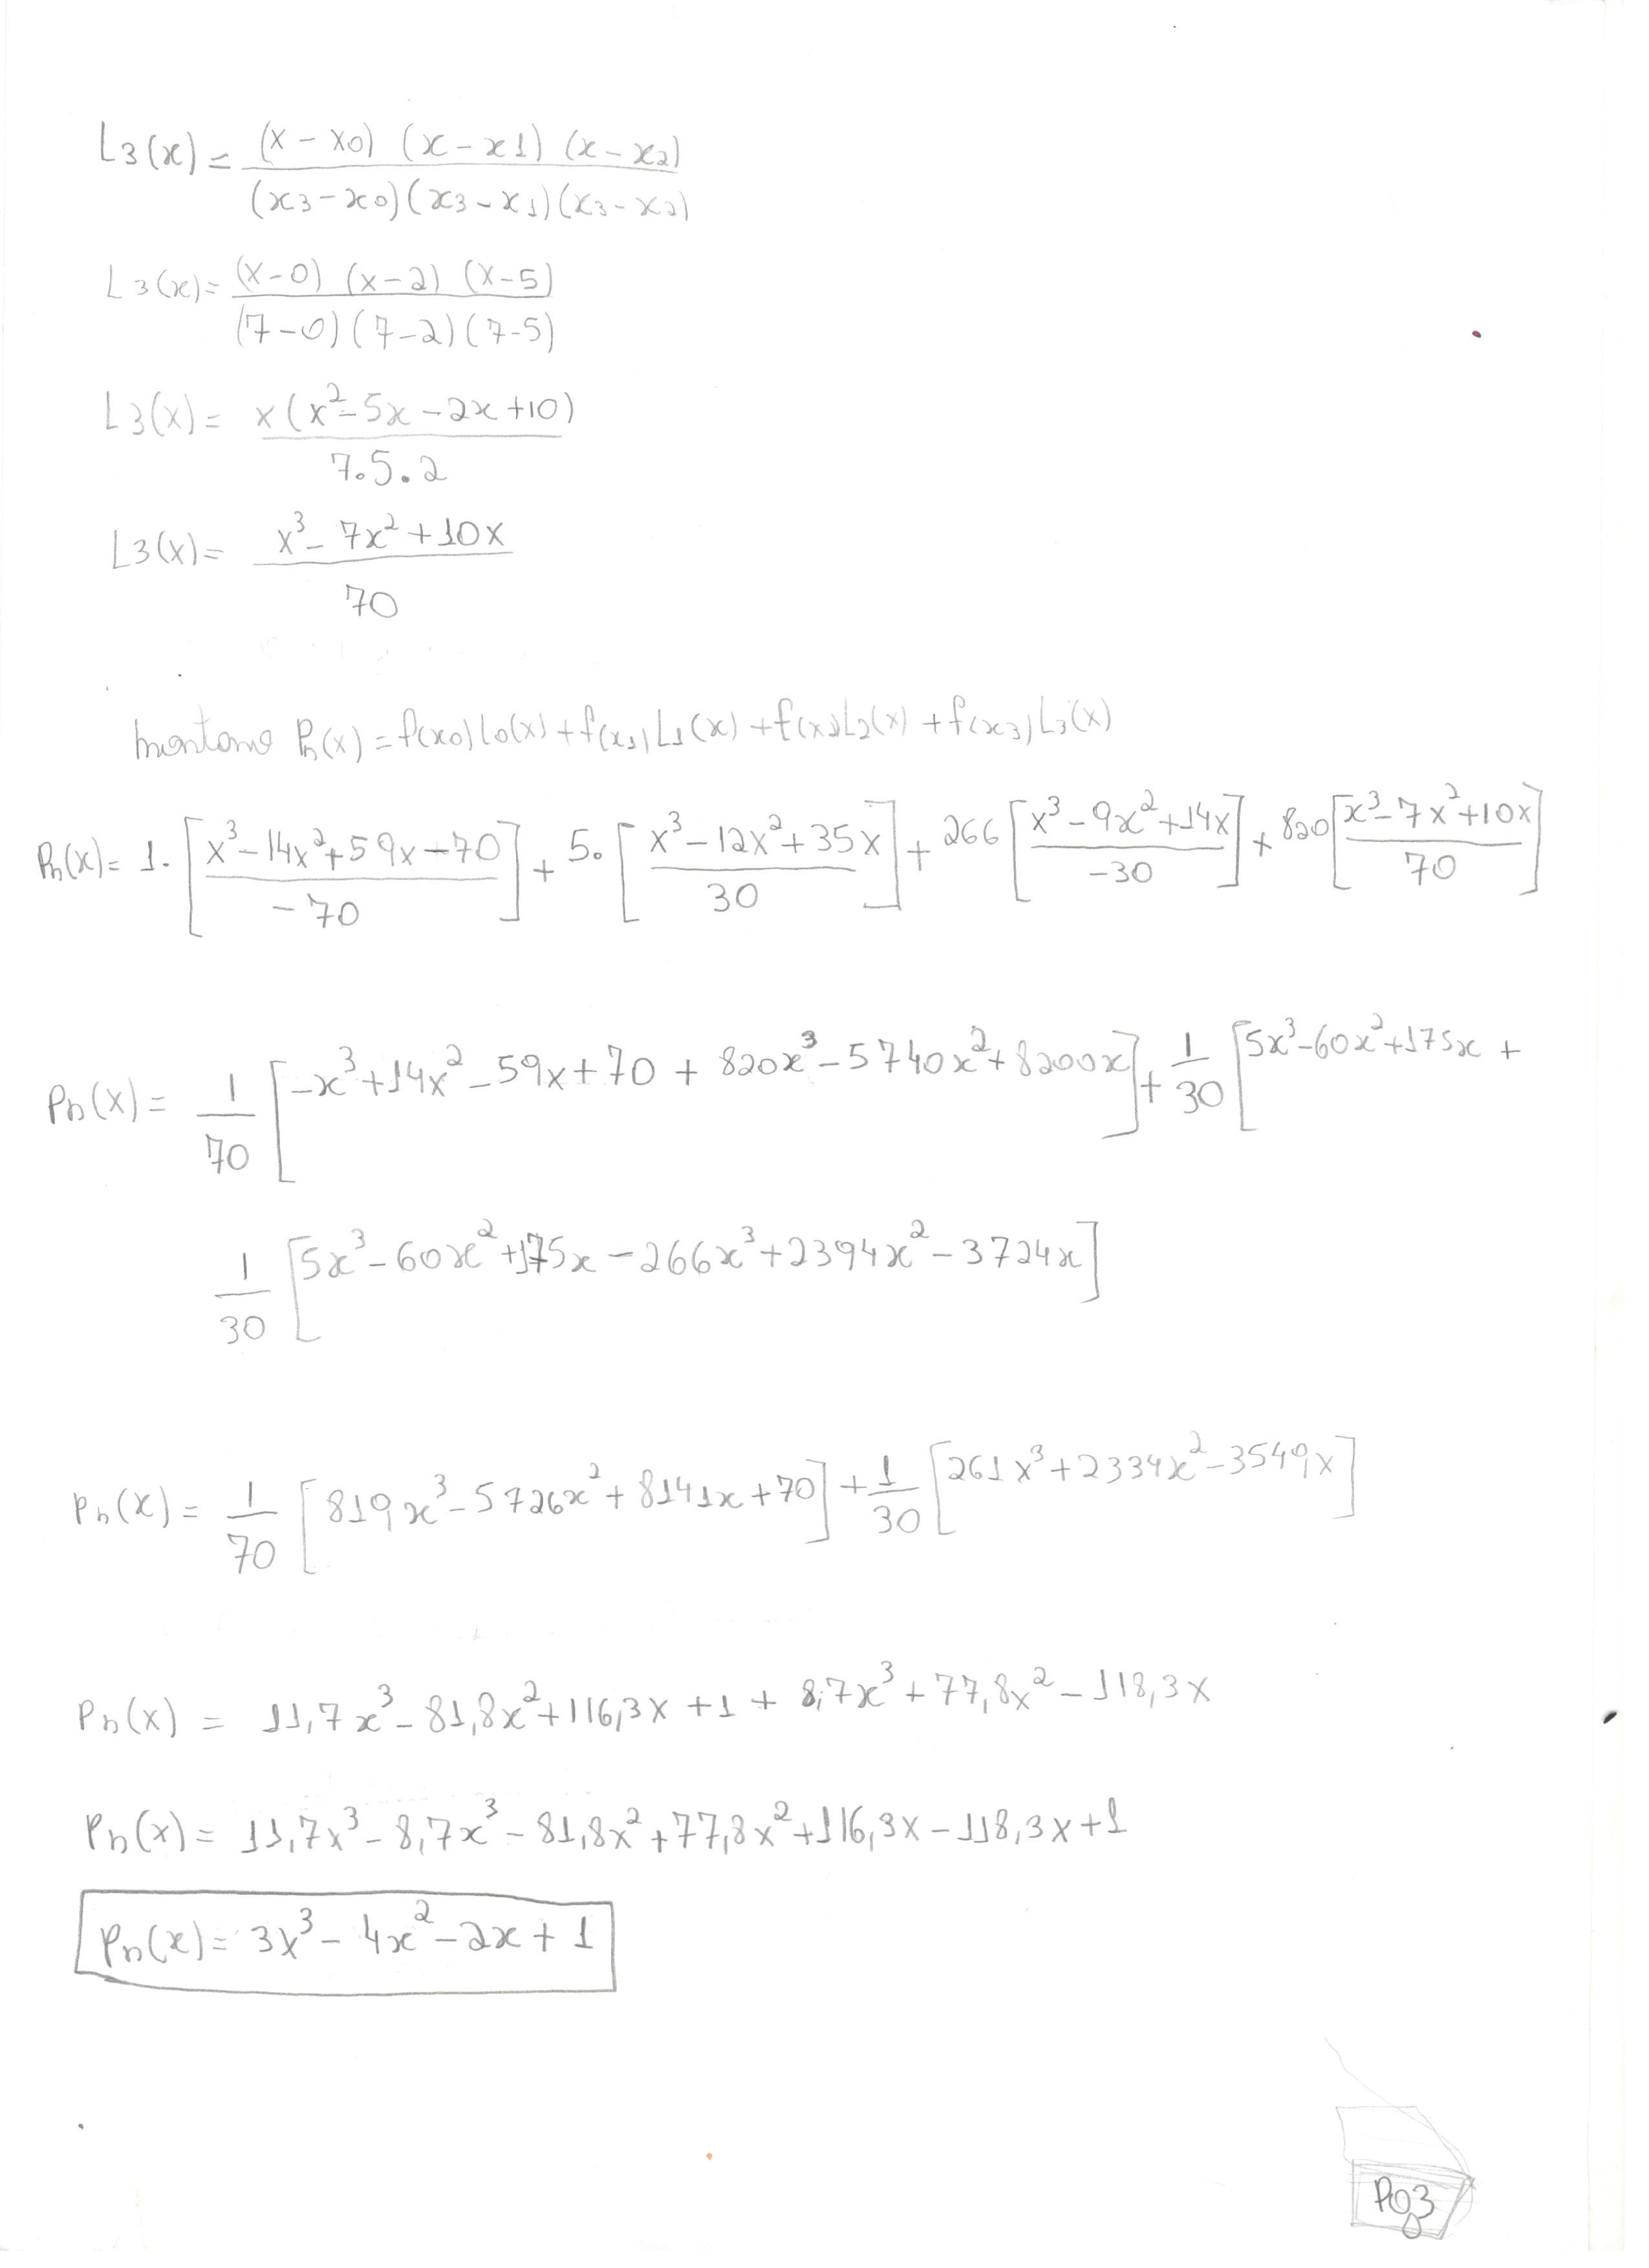 L3(x) = (x - x0) (x - x1) (x - x2)
(x3 - x0) (x3 - x1) (x3 - x2)
L3(x) = (x-0) (x-2) (x-5)
(7-0) (7-2) (7-5)
L3(x) = x(x² - 5x - 2x + 10)
7.5.2
L3(x) = x³ - 7x² + 10x
70
Pn(x) = f(x0) L0(x) + f(x1) L1(x) + f(x2) L2(x) + f(x3) L3(x)
Pn(x) = 1. [x³ - 14x² + 59x - 70 / -70] + 5. [x³ - 12x² + 35x / 30] + 266 [x³ - 9x² + 14x / -30] + 820 [x³ - 7x² + 10x / 70]
Pn(x) = 1/70 [-x³ + 14x² - 59x + 70 + 820x³ - 5740x² + 8200x] + 1/30 [5x³ - 60x² + 175x +
1/30 [5x³ - 60x² + 175x - 266x³ + 2394x² - 3724x]
Pn(x) = 1/70 [819x³ - 5726x² + 8141x + 70] + 1/30 [261x³ + 2334x² - 3549x]
Pn(x) = 11,7x³ - 81,8x² + 116,3x + 1 + 8,7x³ + 77,8x² - 118,3x
Pn(x) = 11,7x³ - 8,7x³ - 81,8x² + 77,8x² + 116,3x - 118,3x + 1
Pn(x) = 3x³ - 4x² - 2x + 1